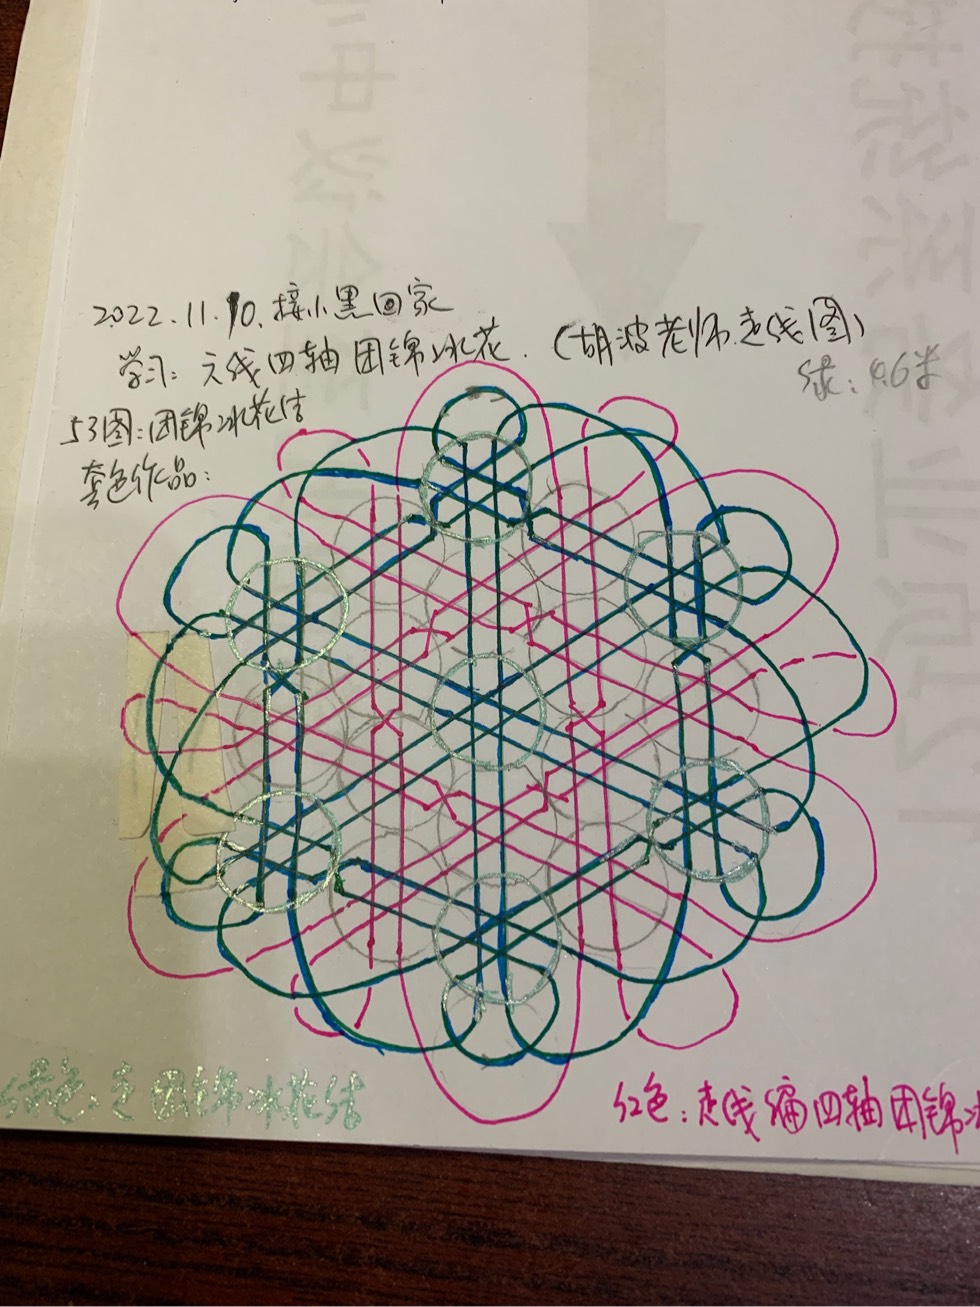 2022.11.10.接小黑回家
学习:六线四轴团锦冰花.(胡波老师走线图)
绿:4.6米
53图:团锦冰花结
套色作品:
绿色:走团锦冰花结
红色:走线编四轴团锦冰